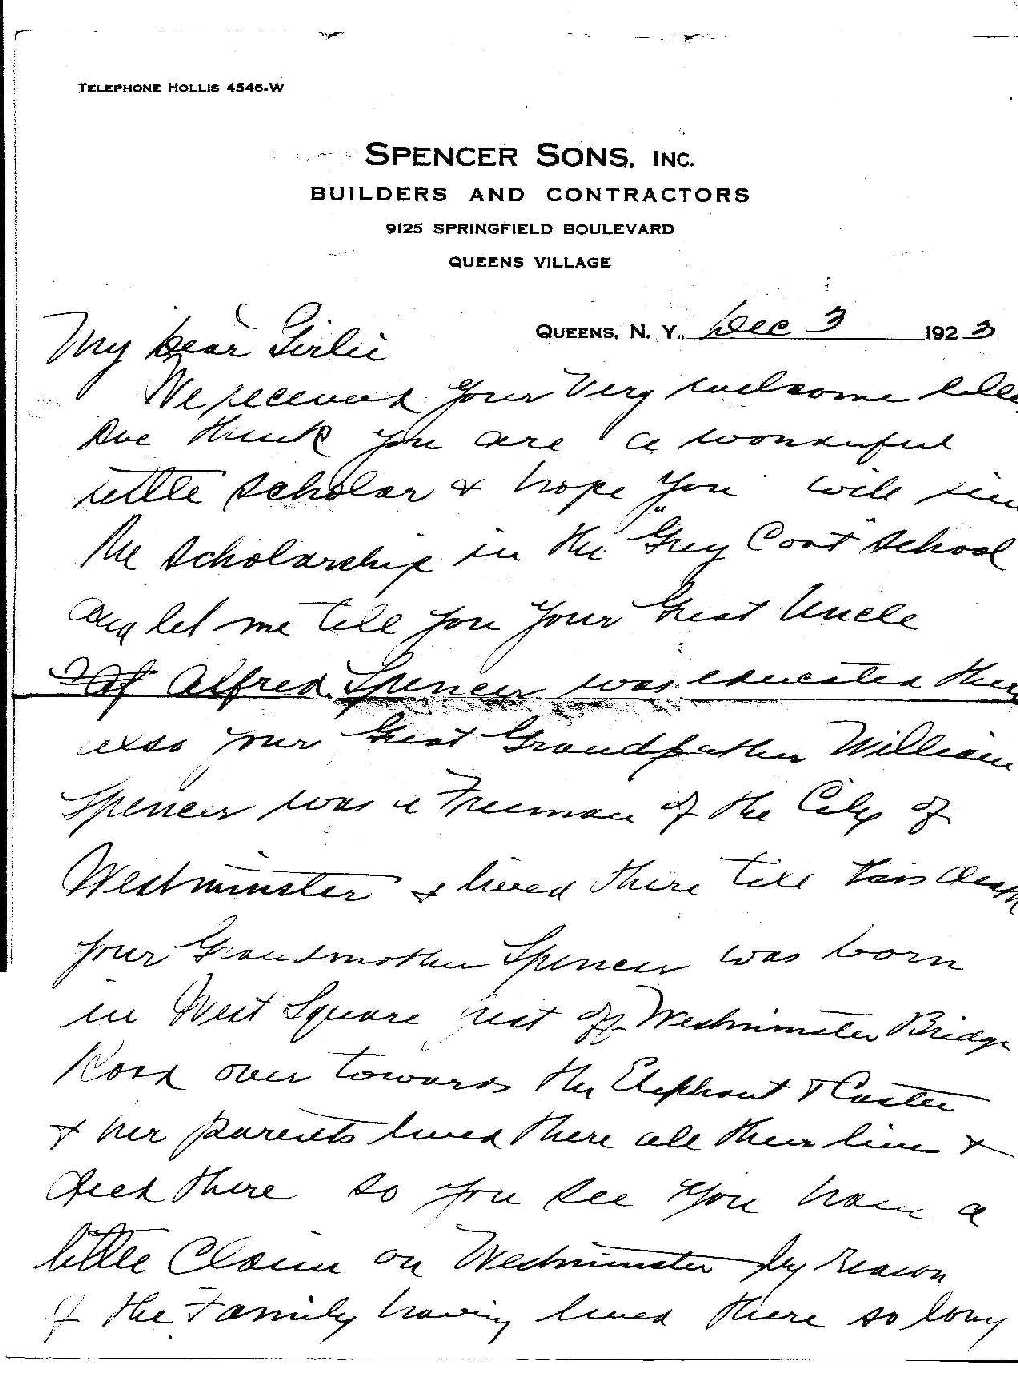 TELEPHONE HOLLIS 4546-W
SPENCER SONS, INC.
BUILDERS AND CONTRACTORS
9125 SPRINGFIELD BOULEVARD
QUEENS VILLAGE
QUEENS, N. Y., Dec 3 1923
My Dear Girlie
We received your very welcome
we think you are a wonderful
little scholar & hope you will
the scholarship in the "Grey Coat" School
and let me tell you your Great Uncle
Alfred Spencer was educated
also your Great Grandfather William
Spencer was a Freeman of the City of
Westminster & lived there till his death
your Grandmother Spencer was born
in West Square just off Westminster Bridge
Road over towards the Elephant & Castle
& her parents lived there all their lives &
died there so you see you have a
little Claim on Westminster by reason
of the Family having lived there so long